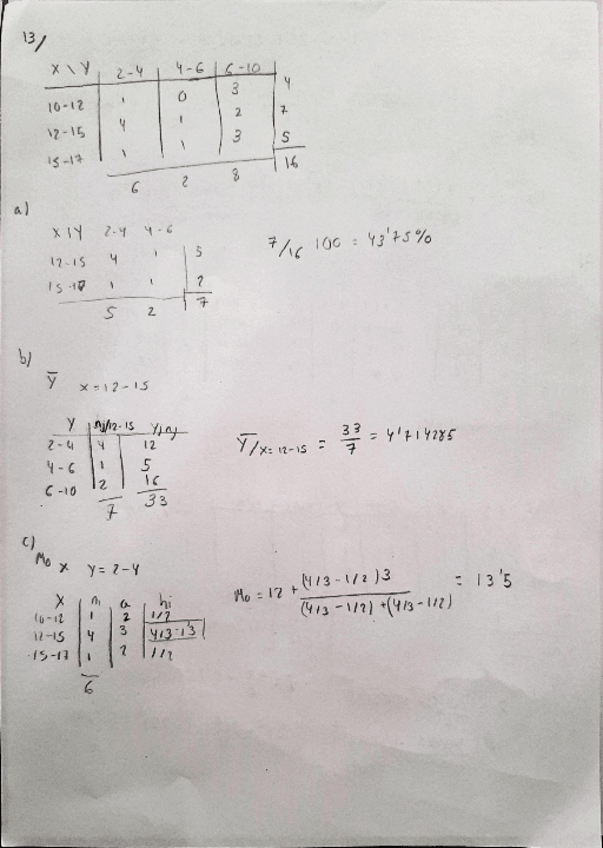 13/
X \ Y 2-4 4-6 6-10
10-12 1 0 3 4
12-15 4 1 2 7
15-17 1 1 3 5
6 2 8 16
a)
X \ Y 2-4 4-6
12-15 4 1 5
15-17 1 1 2
5 2 7
7/16 100 = 43'75%
b)
Y̅ X = 12-15
Y nj/12-15 Yjnj
2-4 4 12
4-6 1 5
6-10 2 16
7 33
Y̅/X=12-15 = 33/7 = 4'714285
c)
Mo X Y=2-4
X ni a hi
10-12 1 2 1/2
12-15 4 3 4/3=1'3
15-17 1 2 1/2
6
Mo = 12 + (4/3 - 1/2)3 / (4/3 - 1/2) + (4/3 - 1/2) = 13'5